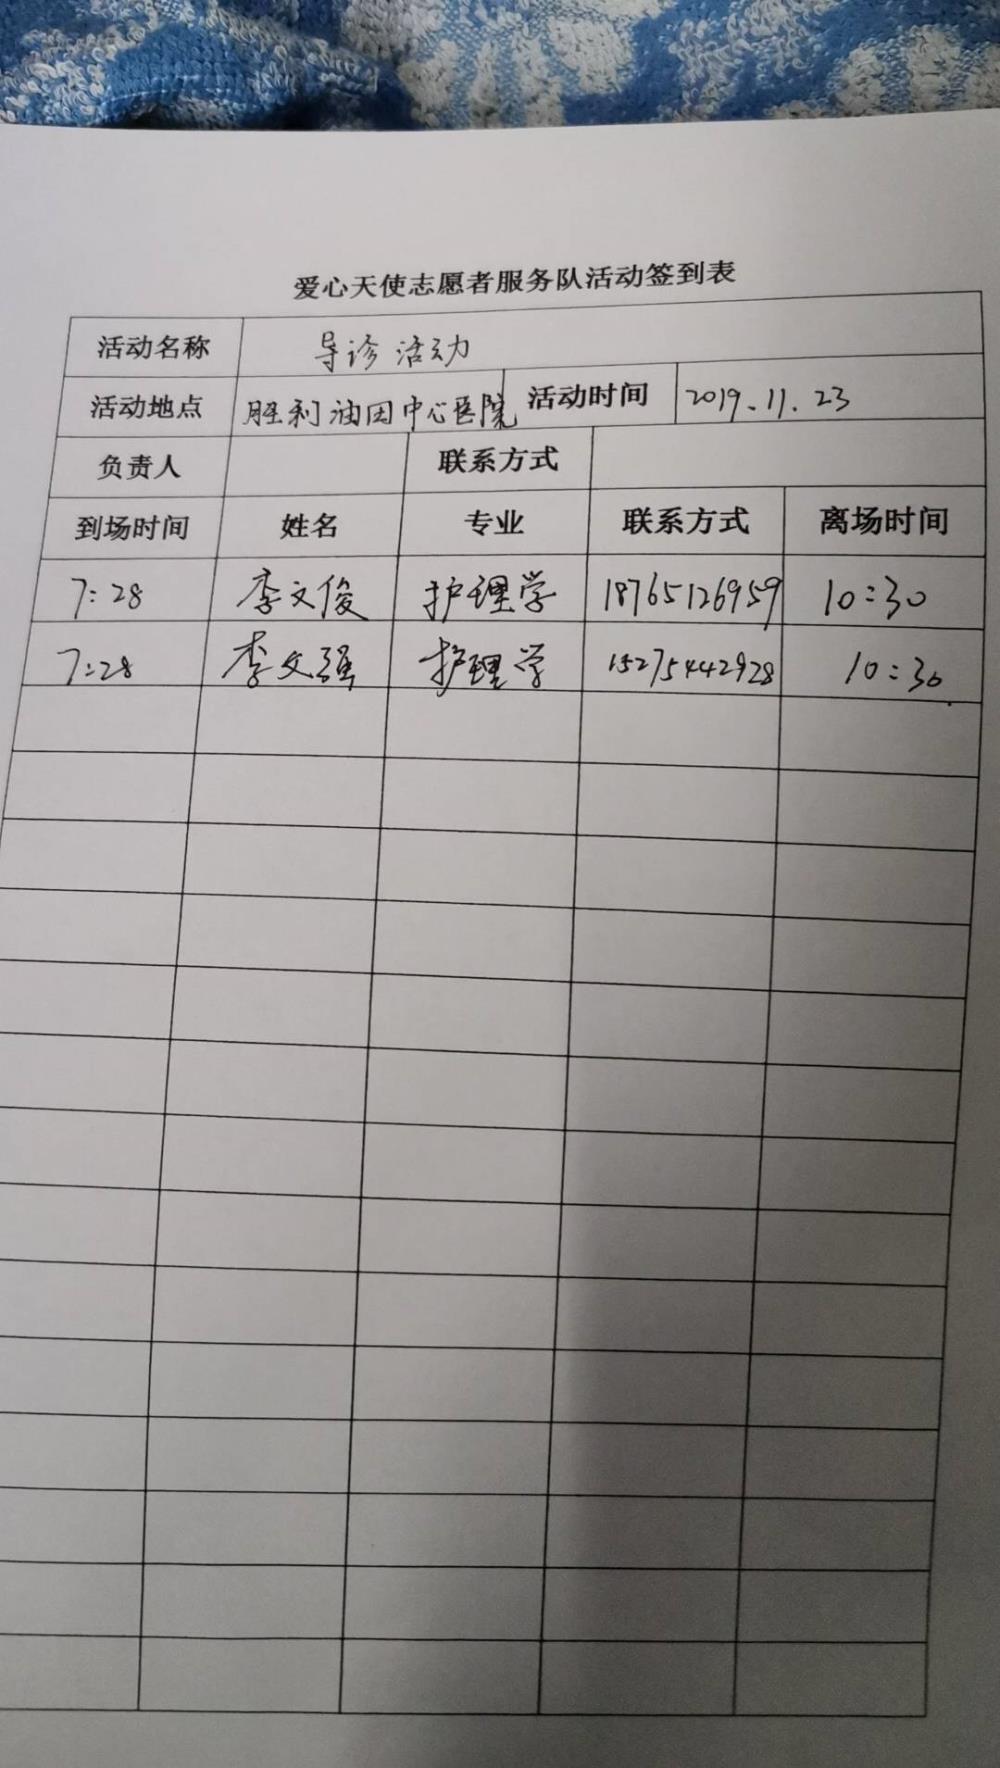 爱心天使志愿者服务队活动签到表
活动名称 导诊活动
活动地点 胜利油田中心医院 活动时间 2019.11.23
负责人 联系方式
到场时间 姓名 专业 联系方式 离场时间
7:28 李文俊 护理学 18765126959 10:30
7:28 李文强 护理学 15275442928 10:30